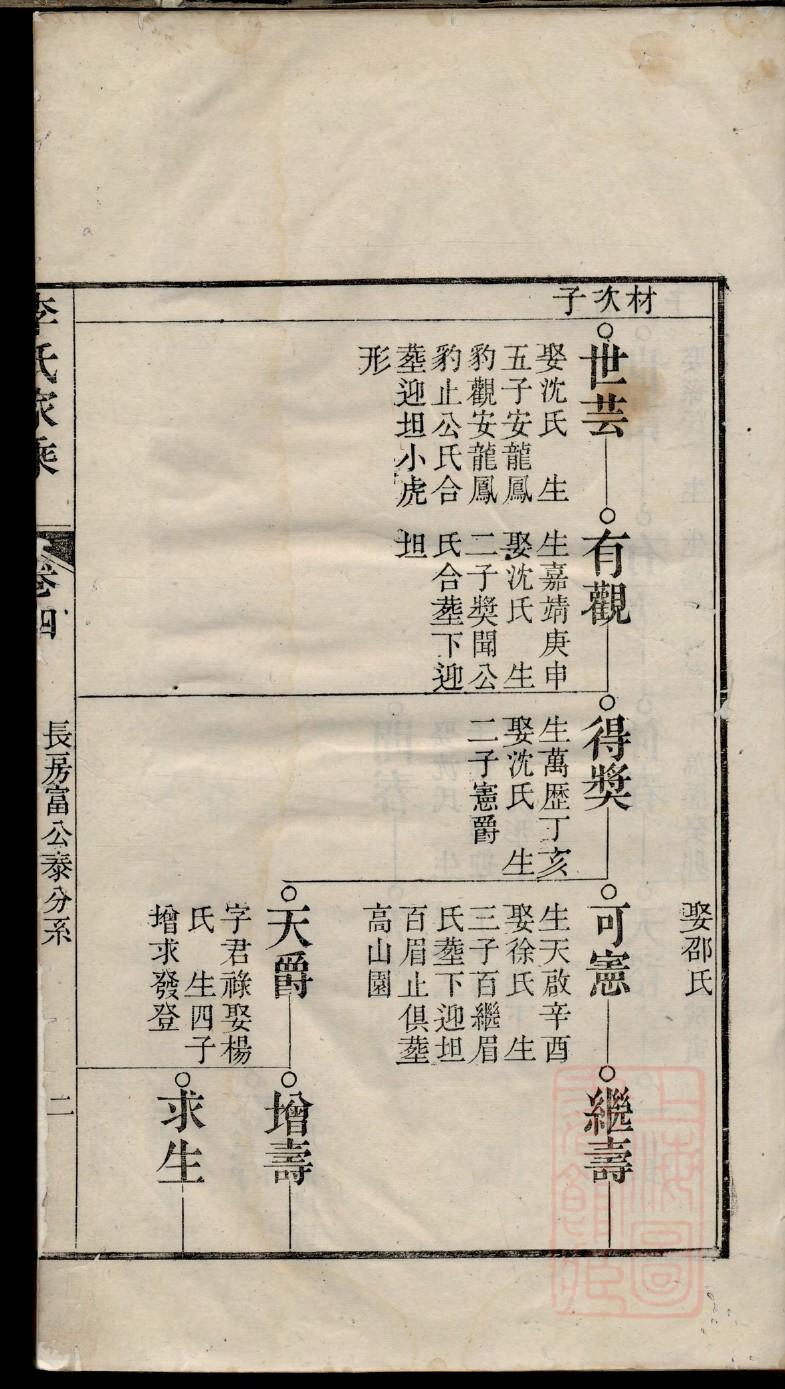 娶邵氏
材次子
世芸
娶沈氏　生
五子安龍鳳
豹觀安龍鳳
豹止公氏合
塟迎坦小虎
形
有觀
生嘉靖庚申
娶沈氏　生
二子獎聞公
氏合塟下迎
坦
得獎
生萬歷丁亥
娶沈氏　生
二子憲爵
可憲
生天啟辛酉
娶徐氏　生
三子百繼眉
氏塟下迎坦
百眉止俱塟
高山園
天爵
字君祿娶楊
氏　生四子
增求發登
繼壽
增壽
求生
李氏家乘
卷四
長房富公泰分系
二